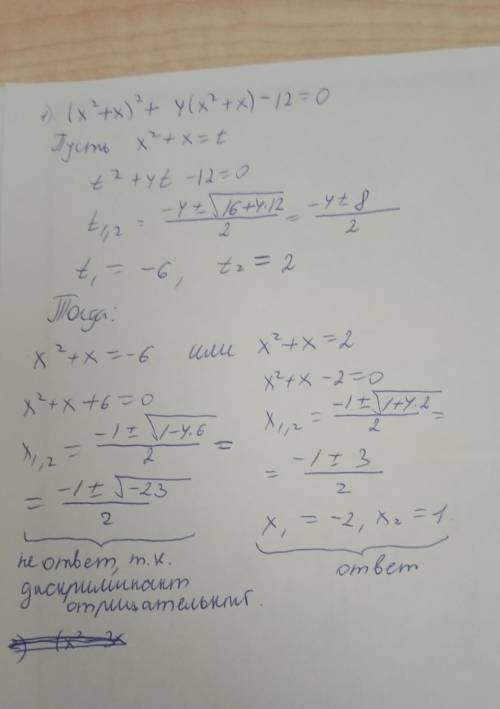 1) (x²+x)²+ 4(x²+x)-12=0
Пусть x²+x=t
t²+4t-12=0
t₁,₂ = (-4±√(16+4·12))/2 = (-4±8)/2
t₁ = -6, t₂ = 2
Тогда:
x²+x=-6 или x²+x=2
x²+x+6=0
x₁,₂ = (-1±√(1-4·6))/2 =
= (-1±√(-23))/2
не ответ, т.к.
дискриминант
отрицательный.
x²+x-2=0
x₁,₂ = (-1±√(1+4·2))/2 =
= (-1±3)/2
x₁ = -2, x₂ = 1
ответ